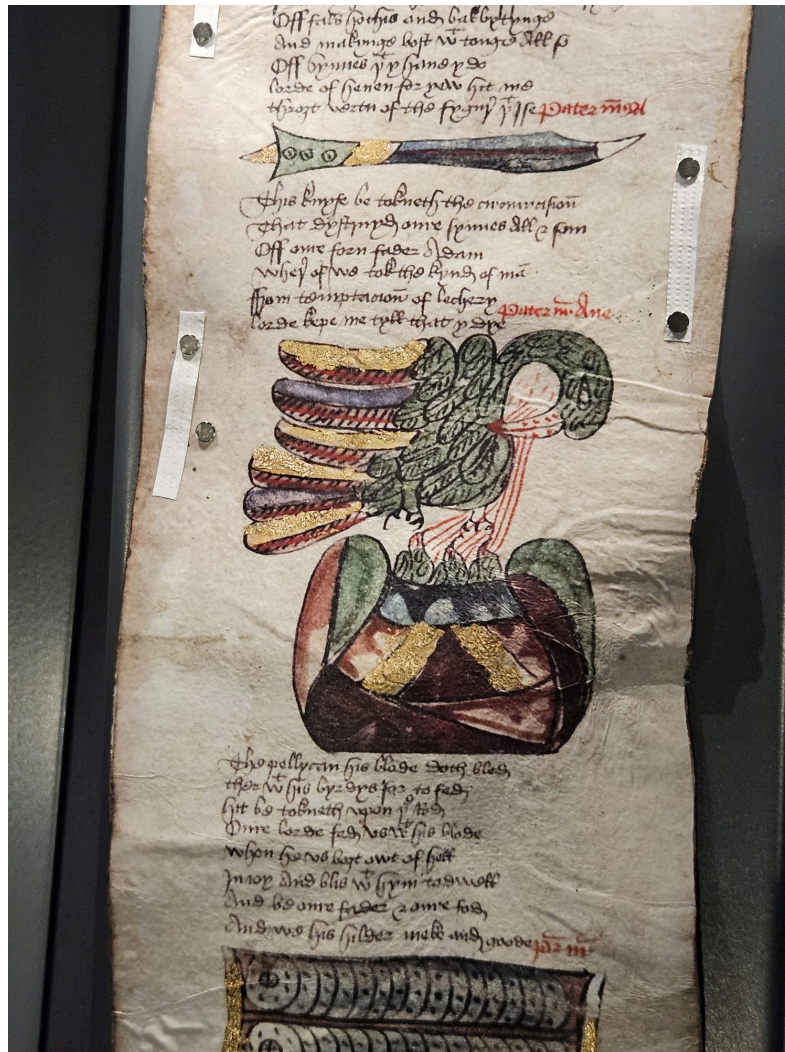 Off fals hothis and bakbytynge
And makynge bost wt tonge All so
Off synnes yt y haue y do
lorde of heuen for yew hit me
throȝt vertu of the fygur yt jsse pater nr
This knyfe be tokneth the circumcision
That dystruyd oure synnes All & som
Off oure forn fader Adam
Wher of we tok the kynd of mā
ffrom temptacion of lechery
lorde kepe me tyll that y dye pater nr Ane
The pellycan his blode doth bled
ther wt his byrdys for to fed
hit be tokneth vpon ye Rod
Oure lorde fed vs wt his blode
when he vs boȝt owt of hell
In ioy And blis wt hym to dwell
And be oure fader & oure fod
And we his hilder meke and goode pr nr